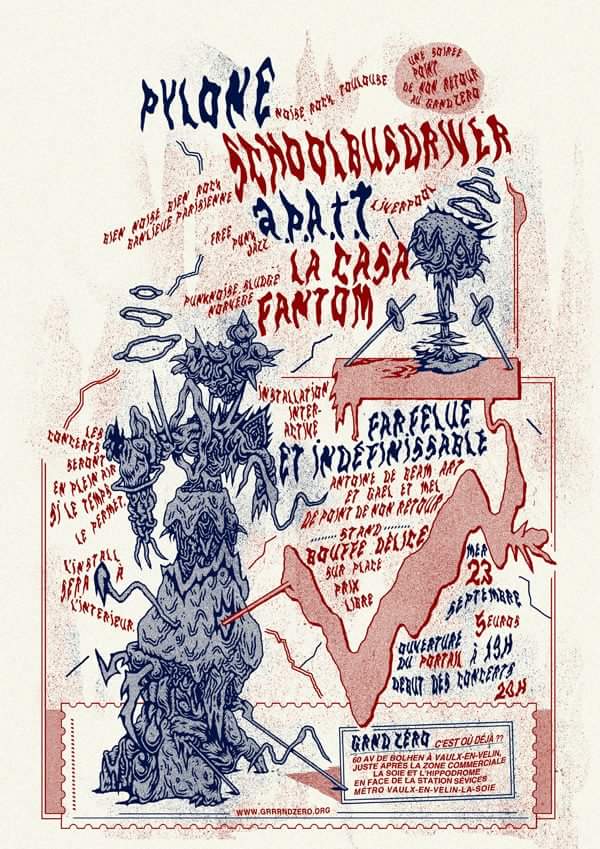 PYLONE
NOISE ROCK TOULOUSE
UNE SOIREE
POINT
DE NON RETOUR
AU GRND ZERO
SCHOOLBUSDRIVER
BIEN NOISE BIEN ROCK
BANLIEUE PARISIENNE
a.P.A.t.T
LIVERPOOL
FREE
PUNK
JAZZ
LA CASA
FANTOM
PUNKNOISE SLUDGE
NORVEGE
INSTALLATION
INTER-
ACTIVE
FARFELUE
ET INDÉFINISSABLE
ANTOINE DE BEAM ART
ET GAEL ET MEL
DE POINT DE NON RETOUR
LES
CONCERTS
SERONT
EN PLEIN AIR
SI LE TEMPS
LE PERMET.
STAND
BOUFFE DÉLICE
SUR PLACE
PRIX
LIBRE
L'INSTALL
SERA À
L'INTERIEUR.
MER
23
SEPTEMBRE
5EUROS
OUVERTURE
DU PORTAIL À 19H
DEBUT DES CONCERTS
20H
GRND ZERO C'EST OÙ DÉJÀ ??
60 AV DE BOLHEN À VAULX-EN-VELIN,
JUSTE APRÈS LA ZONE COMMERCIALE
LA SOIE ET L'HIPPODROME
EN FACE DE LA STATION SÉVICES
MÉTRO VAULX-EN-VELIN-LA-SOIE
WWW.GRRRNDZERO.ORG